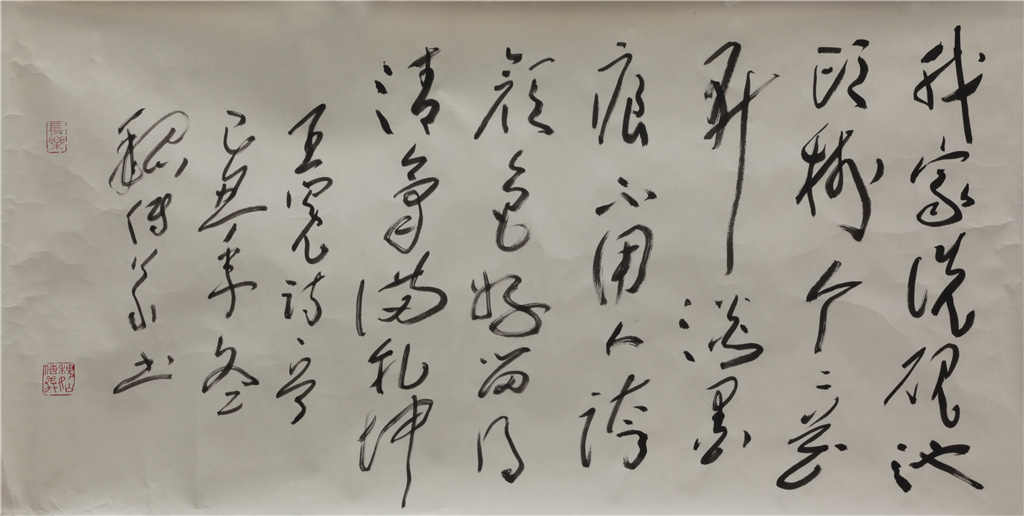 我家洗硯池
頭樹个々花
開淡墨
痕不用人誇
顏色好留得
清氣滿乾坤
王冕詩一首
己亥年冬
魏傳義書